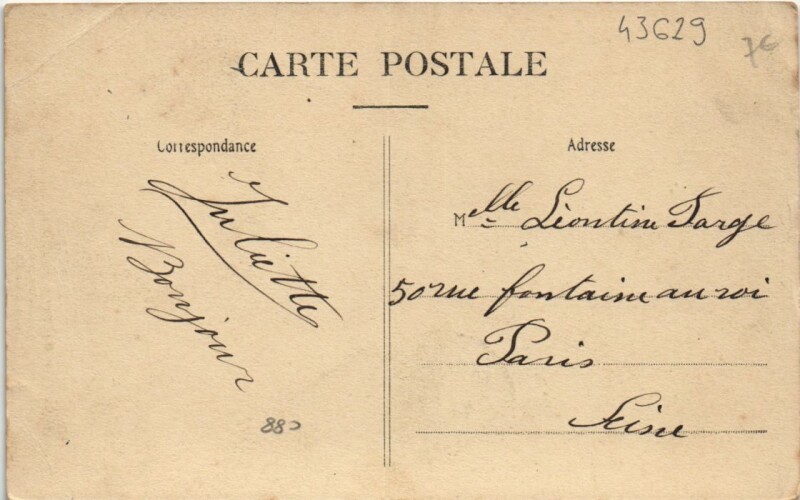 43629
7€
CARTE POSTALE
Correspondance
Adresse
Juliette
Bonjour
Melle Léontine Farge
50 rue fontaine au roi
Paris
Seine
880